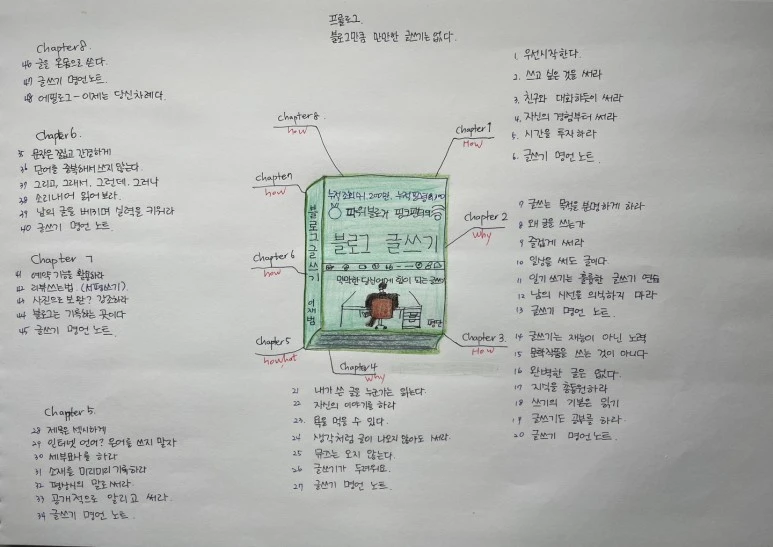 프롤로그.
블로그만큼 만만한 글쓰기는 없다.
Chapter 8.
46 글을 온몸으로 쓴다.
47 글쓰기 명언노트.
48 에필로그 - 이제는 당신차례다.
1. 우선시작한다.
2. 쓰고 싶은 것을 써라
3. 친구와 대화하듯이 써라
4. 자신의 경험부터 써라
5. 시간을 투자하라
6. 글쓰기 명언노트.
chapter 8.
how
chapter 1
How
Chapter 6.
35 문장은 짧고 간결하게
36 단어를 중복해서 쓰지 않는다.
37 그리고, 그래서, 그런데, 그러나
38 소리내어 읽어보라.
39 남의 글을 베끼며 실력을 키워라
40 글쓰기 명언 노트.
chapter 7
how
누적조회수 1,200만,
파워블로거 핑크팬더의
블로그 글쓰기
만만한 당신에게 힘이 되는 글쓰기
블로그 글쓰기
이재범
평단
Chapter 2
why
7 글쓰는 목적을 분명하게 하라
8 왜 글을 쓰는가
9 즐겁게 써라
10 일상을 써도 글이다.
11 일기 쓰기는 훌륭한 글쓰기 연습
12 남의 시선을 의식하지 마라
13 글쓰기 명언 노트.
Chapter 7
41 예약 기능을 활용하라
42 리뷰쓰는법 (서평쓰기).
43 사진으로 보완? 강조하라
44 블로그는 기록하는 곳이다
45 글쓰기 명언노트.
Chapter 6
how
Chapter 5
how, what
Chapter 4
why
Chapter 3.
How
14 글쓰기는 재능이 아닌 노력
15 문학작품을 쓰는 것이 아니다
16 완벽한 글은 없다.
17 지식을 총동원하라
18 쓰기의 기본은 읽기
19 글쓰기도 공부를 하라.
20 글쓰기 명언노트.
21 내가 쓴 글을 누군가는 읽는다.
22 자신의 이야기를 하라
23. 욕을 먹을 수 있다.
24 생각처럼 글이 나오지 않아도 써라.
25 뮤즈는 오지 않는다.
26 글쓰기가 두려워요.
27 글쓰기 명언 노트.
Chapter 5.
28 제목은 섹시하게
29 인터넷 언어? 용어를 쓰지 말자
30 세부묘사를 하라
31 소재를 미리미리 기록하라
32 평상시의 말로 써라.
33 공개적으로 알리고 써라.
34 글쓰기 명언 노트.